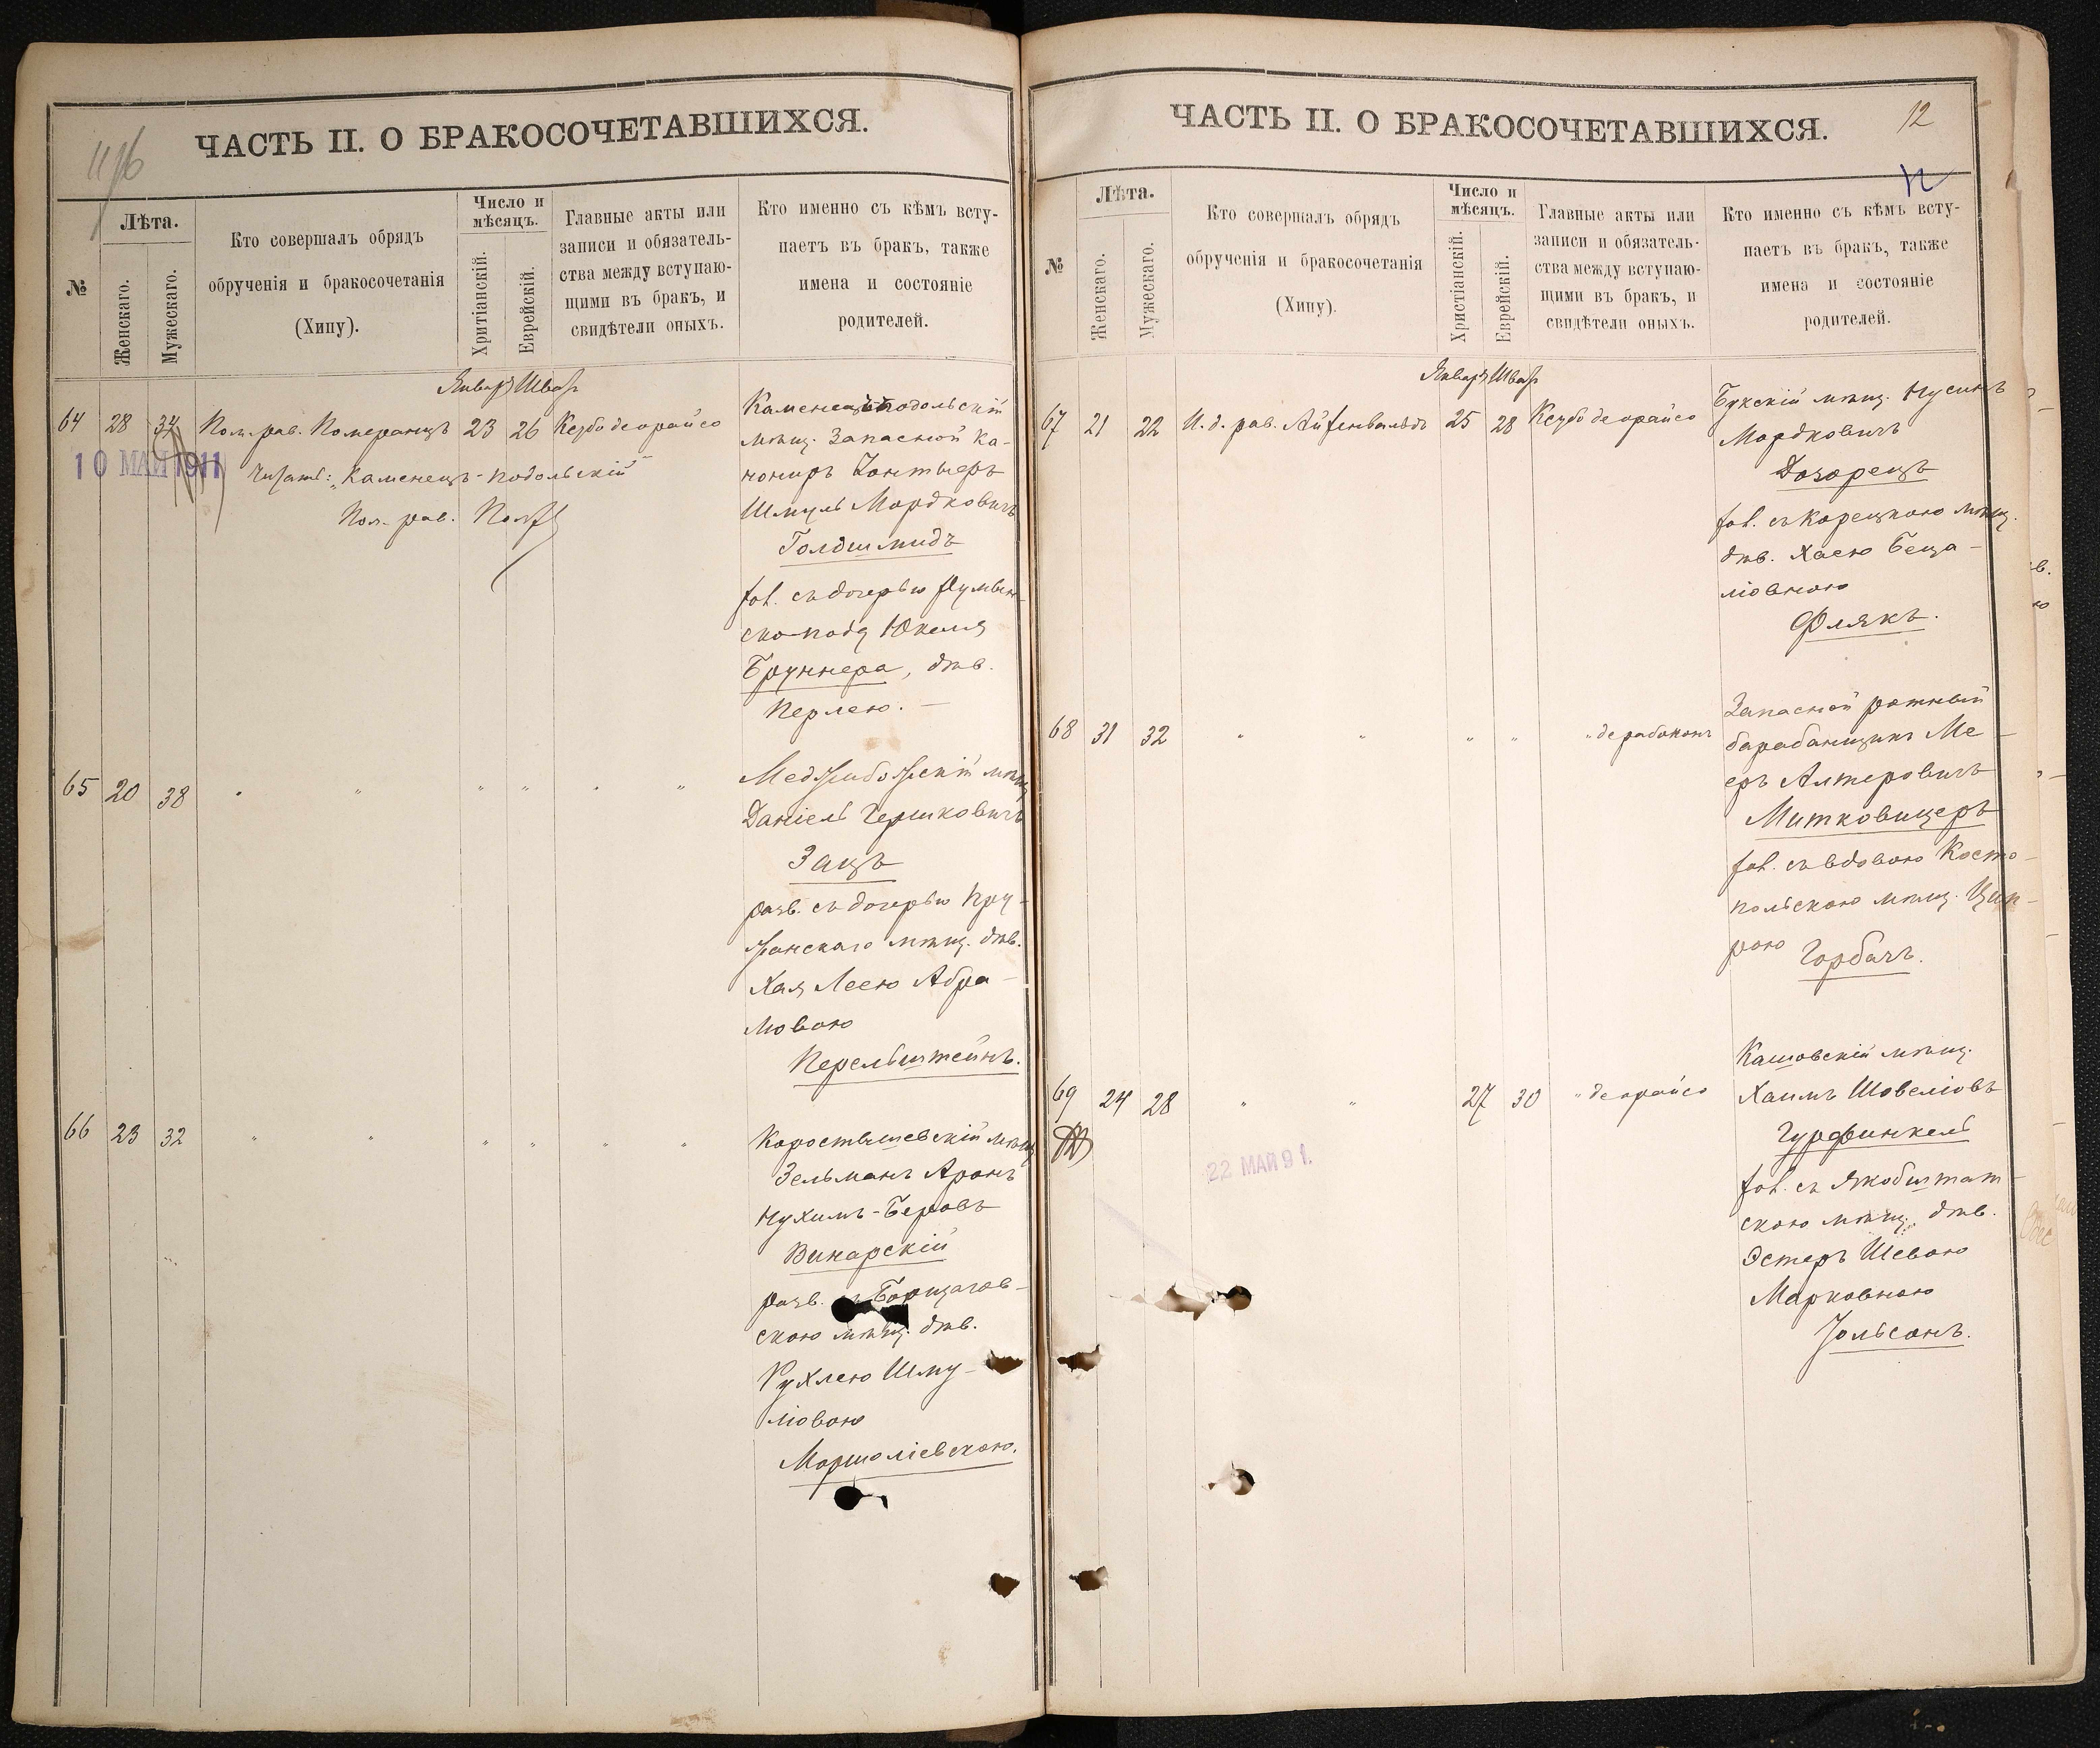 11об
ЧАСТЬ II. О БРАКОСОЧЕТАВШИХСЯ.
№
Лѣта.
Женскаго.
Мужескаго.
Кто совершалъ обрядъ
обрученія и бракосочетанія
(Хипу).
Число и
мѣсяцъ.
Хритіанскій.
Еврейскій.
Главные акты или
записи и обязатель-
ства между вступаю-
щими въ бракъ, и
свидѣтели оныхъ.
Кто именно съ кѣмъ всту-
паетъ въ бракъ, также
имена и состояніе
родителей.
Январь Шват
64 28 34 Пом. рав. Померанцъ 23 26 Ксубо деорайсо
10 МАЙ 1911
Читать: "Каменецъ-подольскій"
Пом. рав.
Каменецъ подольскій
мѣщ. Запасной ка-
нониръ
Шмуль Мордковичъ
Голдшмидъ
хол. съ дочерью
Юкеля
Бруннера, дѣв.
Перлею. –
65 20 38 " " " " " "
Меджибожскій мѣщ.
Даніель Гершковичъ
Зацъ
разв. съ дочерью Пру-
жанскаго мѣщ. дѣв.
Хая Леею Абра-
мовою
Перельштейнъ.
66 23 32 " " " " " "
Коростышевскій мѣщ.
Зельманъ Аронъ
Нухимъ-Беровъ
Винарскій
разв. съ Борщагов-
скою мѣщ. дѣв.
Рухлею Шму-
ліовою
Маршаліевскою.
ЧАСТЬ II. О БРАКОСОЧЕТАВШИХСЯ.
12
12
№
Лѣта.
Женскаго.
Мужескаго.
Кто совершалъ обрядъ
обрученія и бракосочетанія
(Хипу).
Число и
мѣсяцъ.
Христіанскій.
Еврейскій.
Главные акты или
записи и обязатель-
ства между вступаю-
щими въ бракъ, и
свидѣтели оныхъ.
Кто именно съ кѣмъ всту-
паетъ въ бракъ, также
имена и состояніе
родителей.
Январь Шват
67 21 22 И. д. рав. Айзенвальдъ 25 28 Ксубо деорайсо
Букскій мѣщ. Нусинъ
Мордковичъ
Дозорецъ
хол. съ Корецкою мѣщ.
дѣв. Хаею Беца-
ліовною
Флякъ.
68 31 32 " " " " " дерабононъ
Запасной ротный
барабанщикъ Ме-
еръ Алтеровичъ
Митковицеръ
хол. съ вдовою Косто-
польскою мѣщ. Цип-
рою
Горбачъ.
69 24 28 " " 27 30 " деорайсо
22 МАЙ 91.
Кашовскій мѣщ.
Хаимъ Шовеліовъ
Гурфинкель
хол. съ Якобштат-
скою мѣщ. дѣв.
Эстеръ Шевою
Марковною
Іольсонъ.